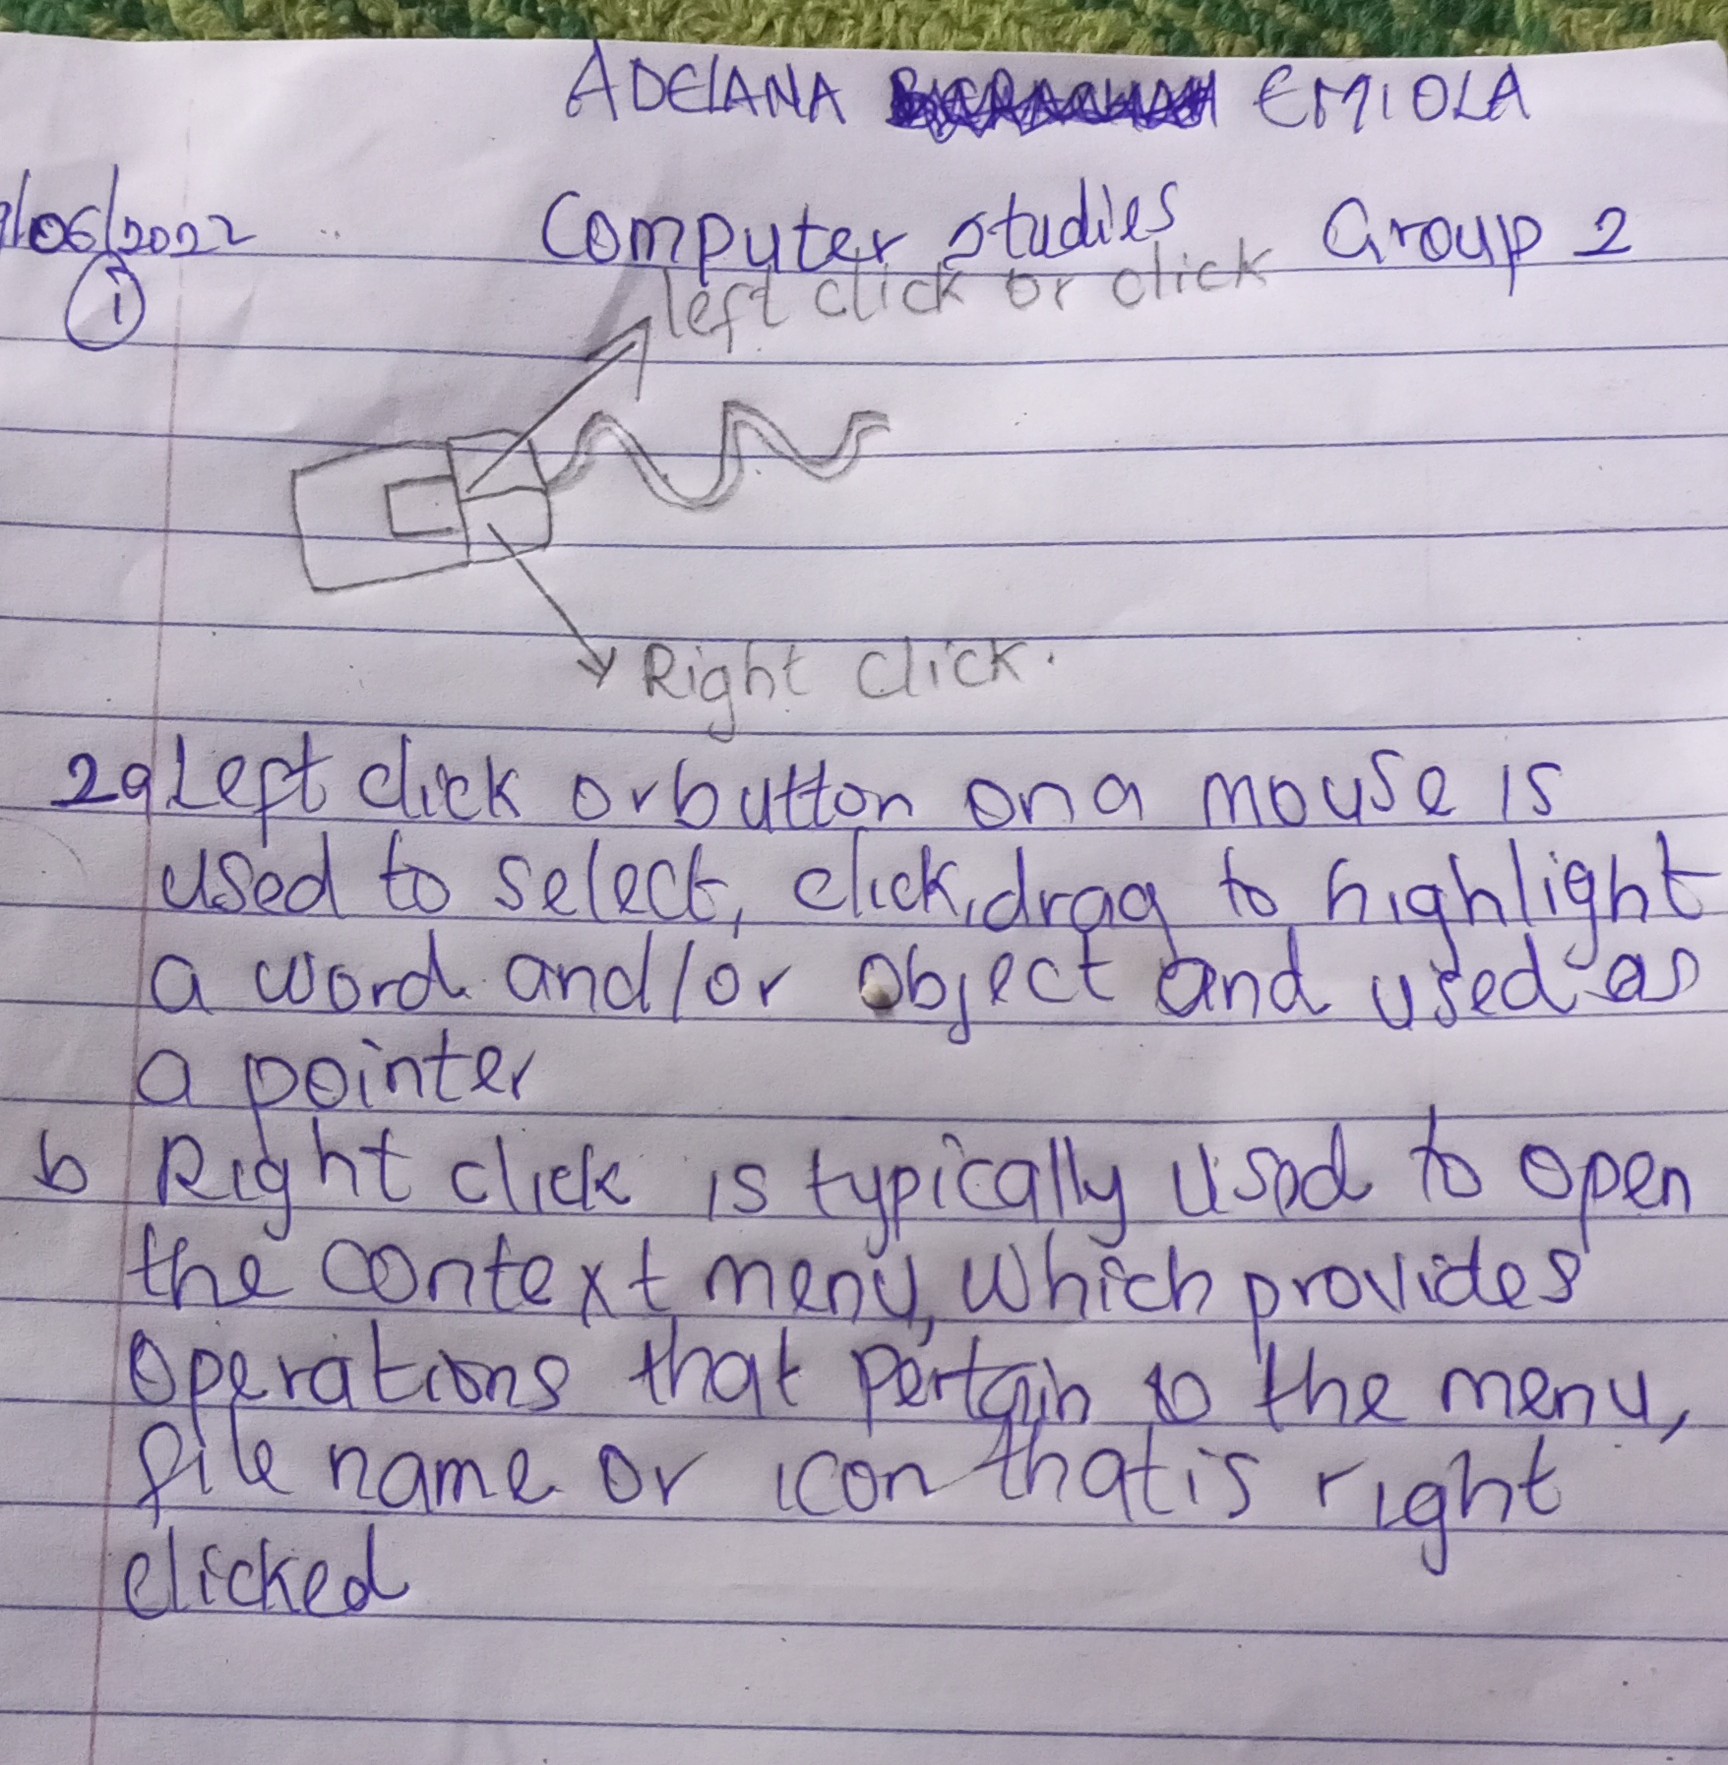 ADELANA EMIOLA
/06/2022 Computer studies Group 2
i
left click or click
Right click.
2a Left click or button on a mouse is
used to select, click, drag to highlight
a word and/or object and used as
a pointer
b Right click is typically used to open
the context menu, which provides
operations that pertain to the menu,
file name or icon that is right
clicked